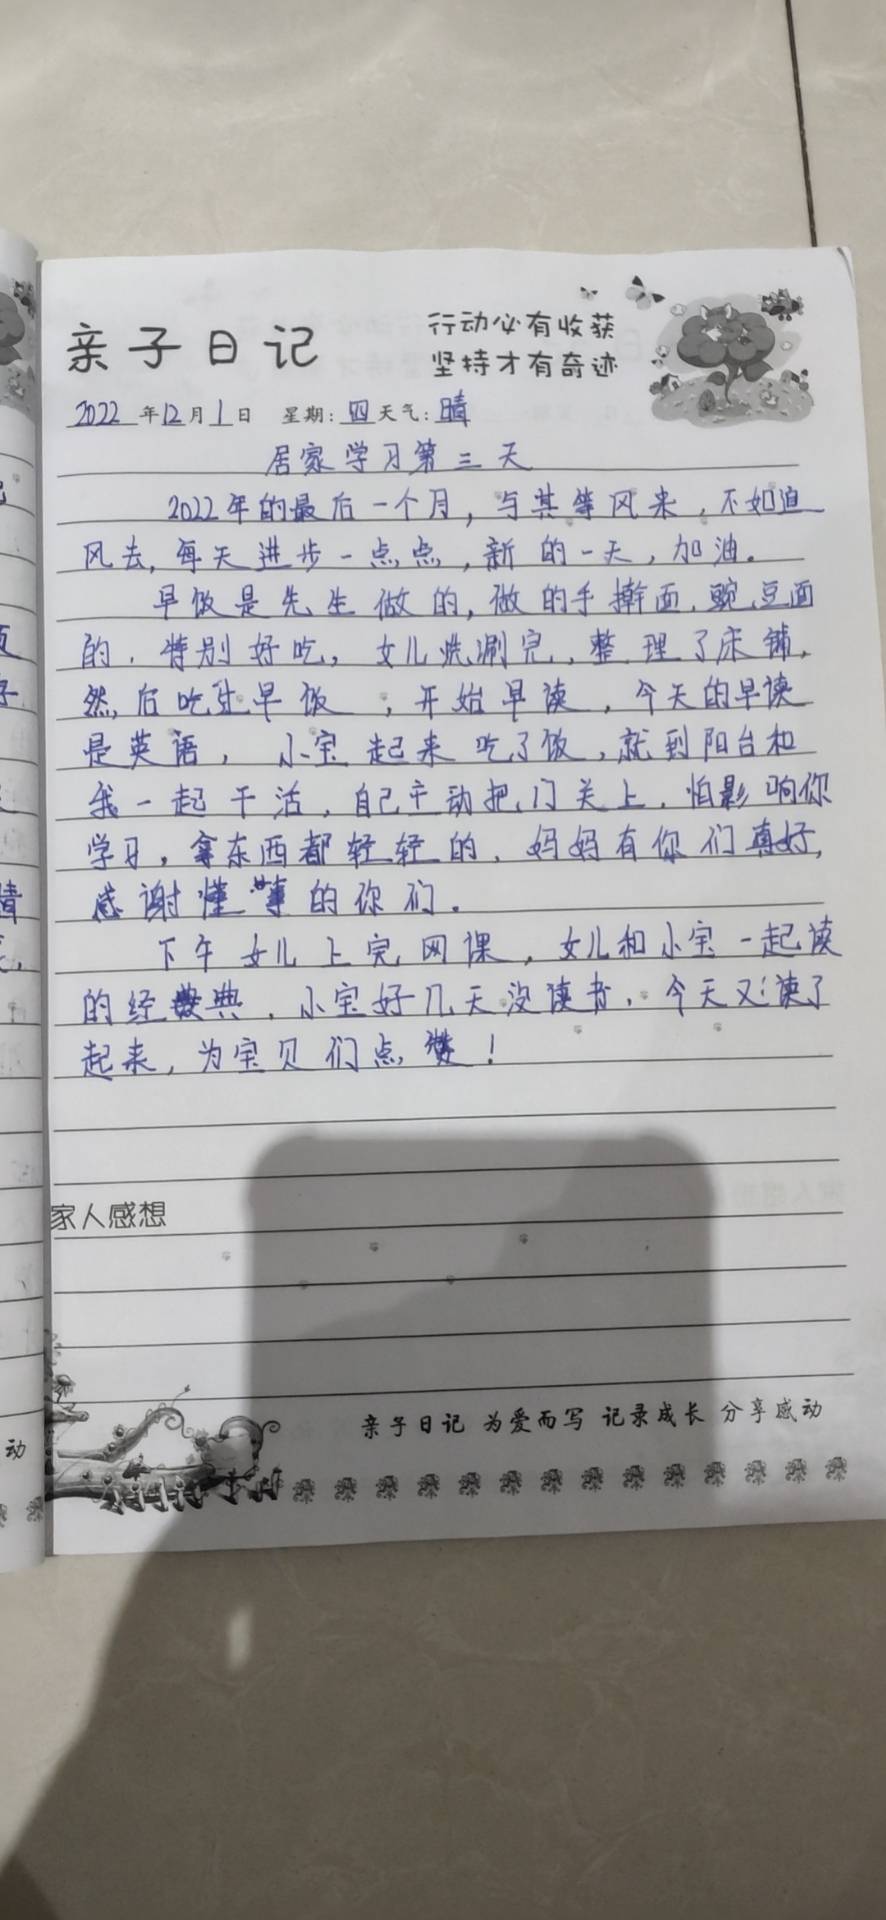 亲子日记
行动必有收获
坚持才有奇迹
2022年12月1日 星期:四天气:晴
居家学习第三天
2022年的最后一个月,与其等风来,不如迫
风去,每天进步一点点,新的一天,加油。
早饭是先生做的,做的手擀面,豌豆面
的,特别好吃,女儿洗涮完,整理了床铺,
然后吃过早饭,开始早读,今天的早读
是英语,小宝起来吃了饭,就到阳台和
我一起干活,自己主动把门关上,怕影响你
学习,拿东西都轻轻的,妈妈有你们真好,
感谢懂事的你们。
下午女儿上完网课,女儿和小宝一起读
的经典,小宝好几天没读书,今天又读了
起来,为宝贝们点赞!
家人感想
亲子日记 为爱而写 记录成长 分享感动
动
晴